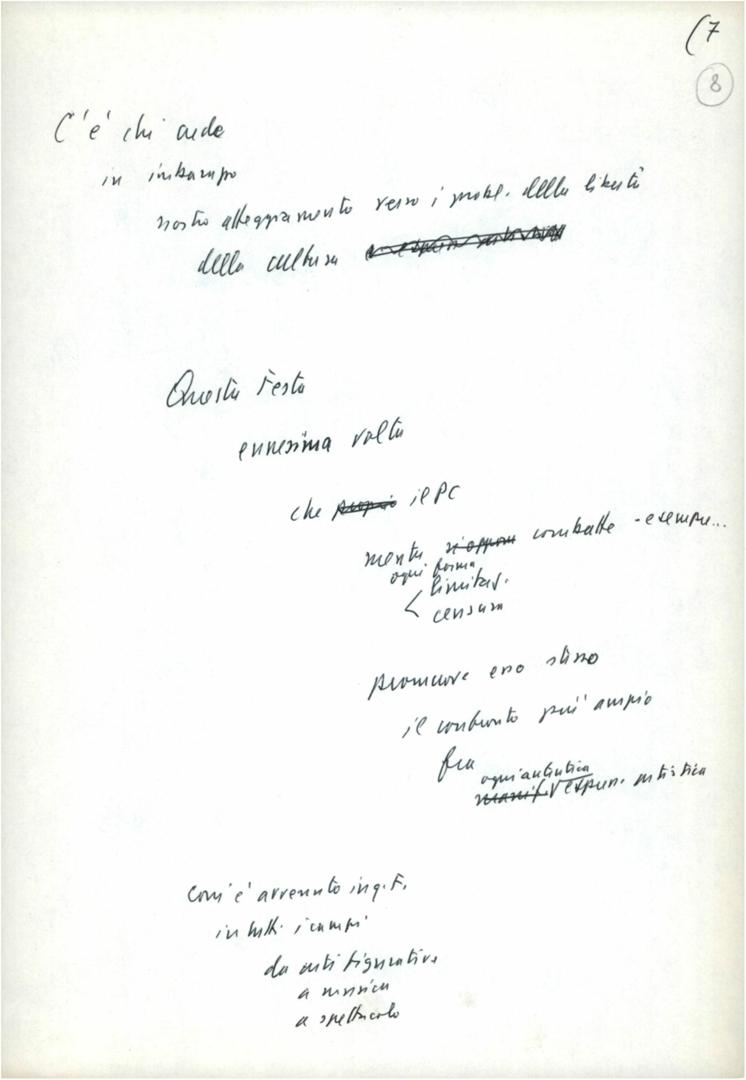 (7
8
C'è chi crede
in imbarazzo
nostro atteggiamento verso i probl. della libertà
della cultura
Questa Festa
ennesima volta
che proprio il PC
mentre si oppone combatte - esempre...
ogni forma
limitaz.
< censura
promuove esso stesso
il confronto più ampio
fra
ogni autentica
manif. V espress. artistica
com'è avvenuto in q. F.
in tutti i campi
da arti figurative
a musica
a spettacolo